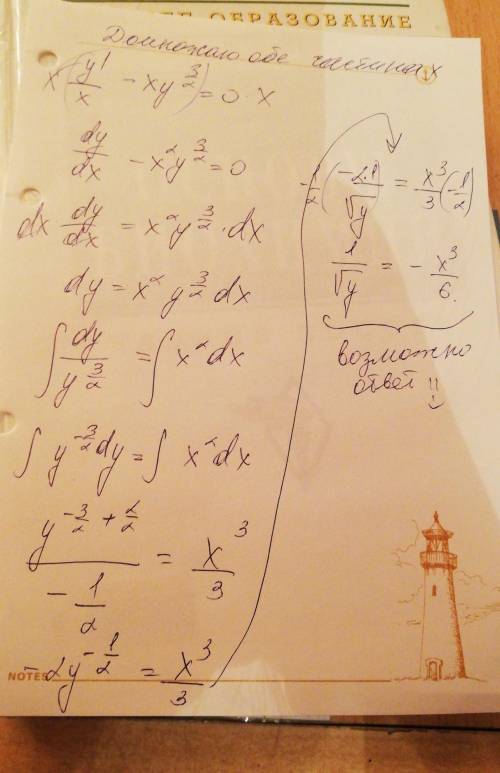 ОБРАЗОВАНИЕ
Домножаю обе части на x
x(y'/x - xy^{3/2}) = 0·x
dy/dx - x²y^{3/2} = 0
dx dy/dx = x²y^{3/2}·dx
dy = x² y^{3/2} dx
∫ dy/y^{3/2} = ∫ x² dx
∫ y^{-3/2} dy = ∫ x² dx
y^{-3/2 + 2/2} / -1/2 = x³/3
-2y^{-1/2} = x³/3
NOTES
(-2·1/√y) = x³/3 (-1/2)
1/√y = - x³/6.
возможно
ответ !!